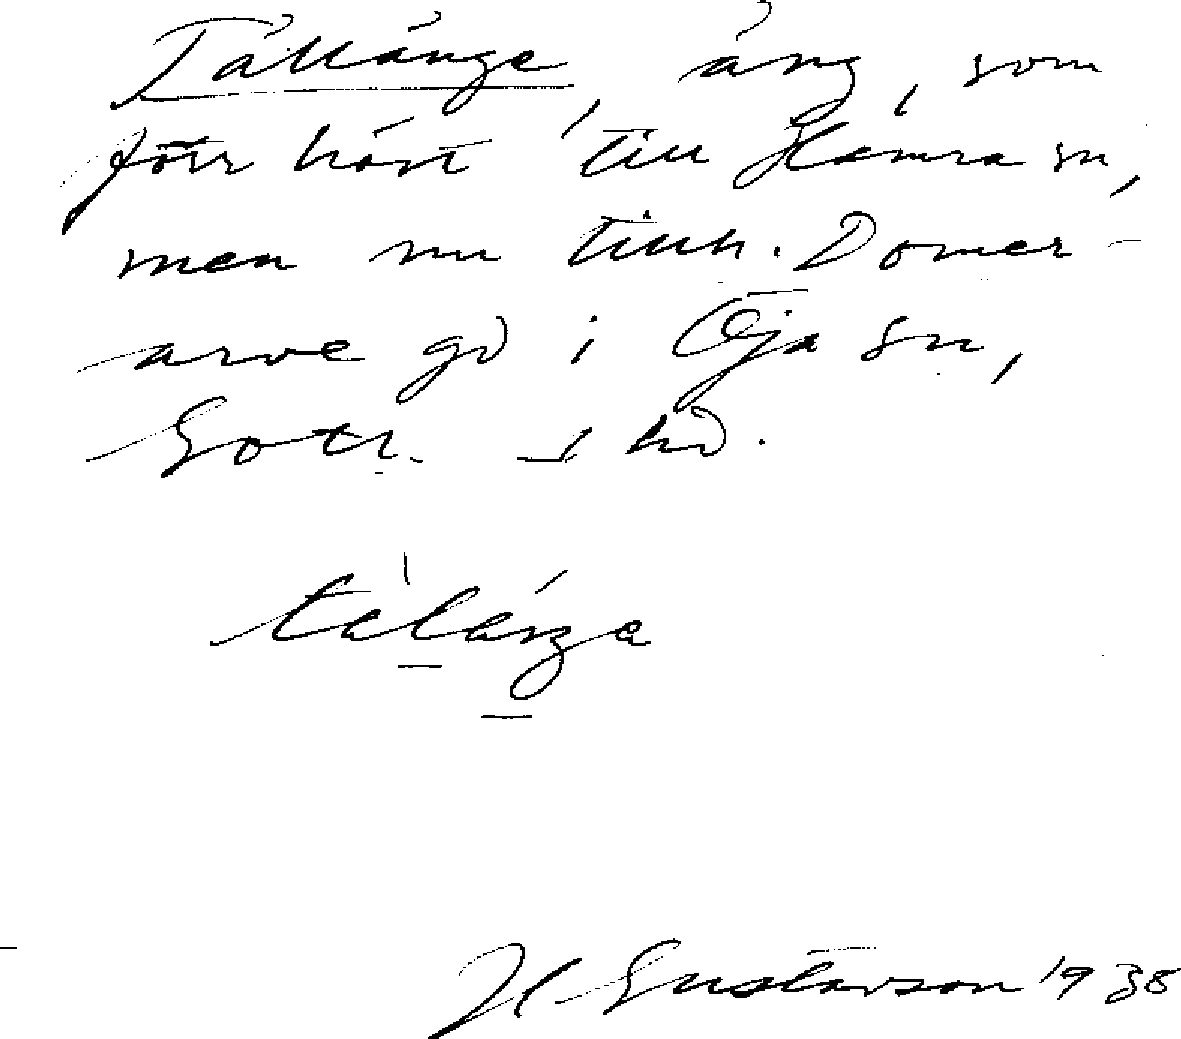 Tällänge, äng, som
förr hört till Hamra sn,
men nu tillh. Domer-
arve gd i Öja sn,
Gotl. s hd.
H. Gustavson 1938